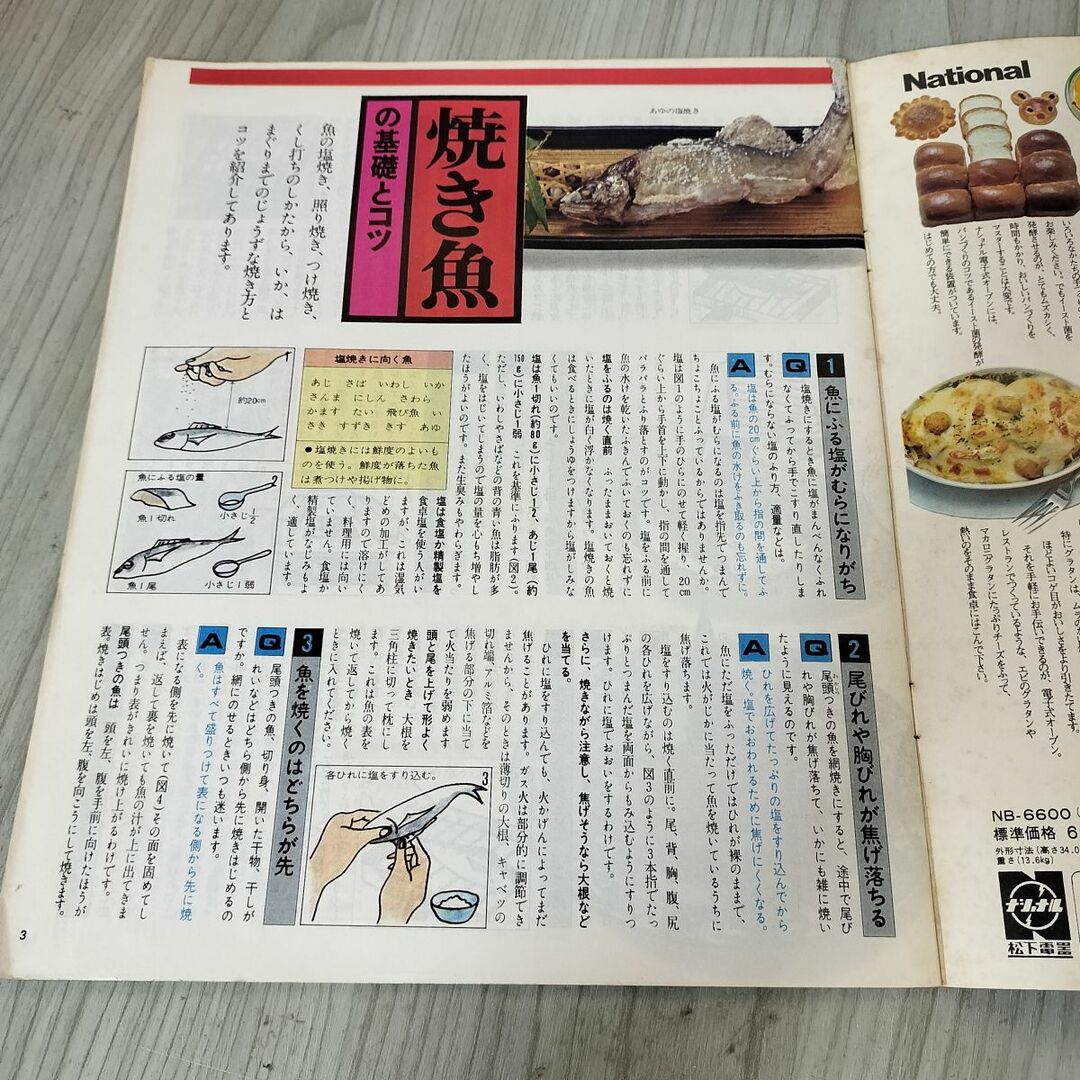 焼き魚
の基礎とコツ
魚の塩焼き、照り焼き、つけ焼き、
くし打ちのしかたから、いか、は
まぐりまでのじょうずな焼き方と
コツを紹介してあります。
あゆの塩焼き
1 魚にふる塩がむらになりがち
Q 塩焼きにするとき魚に塩がまんべんなくふれ
なくてふってから手でこすり直したりしま
す。むらにならない塩のふり方、適量などは。
A 塩は魚の20cmぐらい上から指の間を通してふ
る。ふる前に魚の水けをふき取るのも忘れずに。
魚にふる塩がむらになるのは塩を指先でつまんで
ちょこちょことふっているからではありませんか。
塩は図1のように手のひらにのせて軽く握り、20cm
ぐらい上から手首を上下に動かし、指の間を通して
パラパラとふり落とすのがコツです。塩をふる前に
魚の水けを乾いたふきんでふいておくのも忘れずに
塩をふるのは焼く直前 ふったままおいておくと焼
いたときに塩が白く浮かなくなります。塩焼きの魚
は食べるときにしょうゆをつけますから塩がしみな
くてもいいのです。
塩は魚1切れ(約80g)に小さじ1/2、あじ1尾(約
150g)に小さじ1弱 これを基準にふります(図2)。
ただし、いわしやさばなどの背の青い魚は脂肪が多
く、塩をはじいてしまうので塩の量を心もち増やし
たほうがよいのです。また生臭みもやわらぎます。
塩は食塩か精製塩を
食卓塩を使う人がい
ますが、これは湿気
どめの加工がしてあ
りますので溶けにく
く、料理用には向い
ていません。食塩か
精製塩がなじみもよ
く、適しています。
塩焼きに向く魚
あじ さば いわし いか
さんま にしん さわら
かます たい 飛び魚 い
さき すずき きす あゆ
●塩焼きには鮮度のよいも
のを使う。鮮度が落ちた魚
は煮つけや揚げ物に。
1
約20cm
魚にふる塩の量
2
魚1切れ
小さじ1/2
魚1尾
小さじ1弱
2 尾びれや胸びれが焦げ落ちる
Q 尾頭つきの魚を網焼きにすると、途中で尾び
れや胸びれが焦げ落ちて、いかにも雑に焼い
たように見えるのです。
A ひれを広げてたっぷりの塩をすり込んでから
焼く。塩でおおわれるために焦げにくくなる。
魚にただ塩をふっただけではひれが裸のままで、
これでは火がじかに当たって魚を焼いているうちに
焦げ落ちます。
ひれに塩をすり込むのは焼く直前に。尾、背、胸、腹、尻
の各ひれを広げながら、図3のように3本指でたっ
ぷりとつまんだ塩を両面からもみ込むようにすりつ
けます。ひれに塩でおおいをするわけです。
さらに、焼きながら注意し、焦げそうなら大根など
を当てる。
ひれに塩をすり込んでも、火かげんによってまだ
焦げることがあります。ガス火は部分的に調節でき
ませんから、そのときは薄切りの大根、キャベツの
切れ端、アルミ箔などを
焦げる部分の下に当て
て火当たりを弱めます
頭と尾を上げて形よく
焼きたいとき 大根を
三角柱に切って枕にし
ます。これは魚の表を
焼いて返してから焼く
ときにいれてください。
各ひれに塩をすり込む。
3
3 魚を焼くのはどちらが先
Q 尾頭つきの魚、切り身、開いた干物、干しが
れいなどはどちら側から先に焼きはじめるの
ですか。網にのせるときいつも迷います。
A 魚はすべて盛りつけて表になる側から先に焼
く。
表になる側を先に焼いて(図4)その面を固めてし
まえば、返して裏を焼いても魚の汁が上に出てきま
せん。つまり表がきれいに焼け上がるわけです。
尾頭つきの魚は 頭を左、腹を手前に向けたほうが
表。焼きはじめは頭を左、腹を向こうにして焼きます。
3
National
いろいろなかたちの手
お楽しみください。でもイースト菌を
発酵させるのが、とてもムズカシく、
時間もかかり、おいしいパンづくりを
マスターすることは大変です。
ナショナル電子式オーブンには、
パンづくりのコツであるイースト菌の発酵が
簡単にできる装置がついています。
はじめての方でも大丈夫。
特にグラタンは、ム
ほどよいコゲ目がおいしさを引きたてます。
それを手軽にお手伝いできるのが、電子式オーブン。
レストランでつくっているような、エビのグラタンや
マカロニグラタンにたっぷりチーズをふって、
熱いのをそのまま食卓にはこんで下さい。
NB-6600
標準価格 6
外形寸法(高さ34.0
重さ(13.6kg)
ナショナル
松下電器